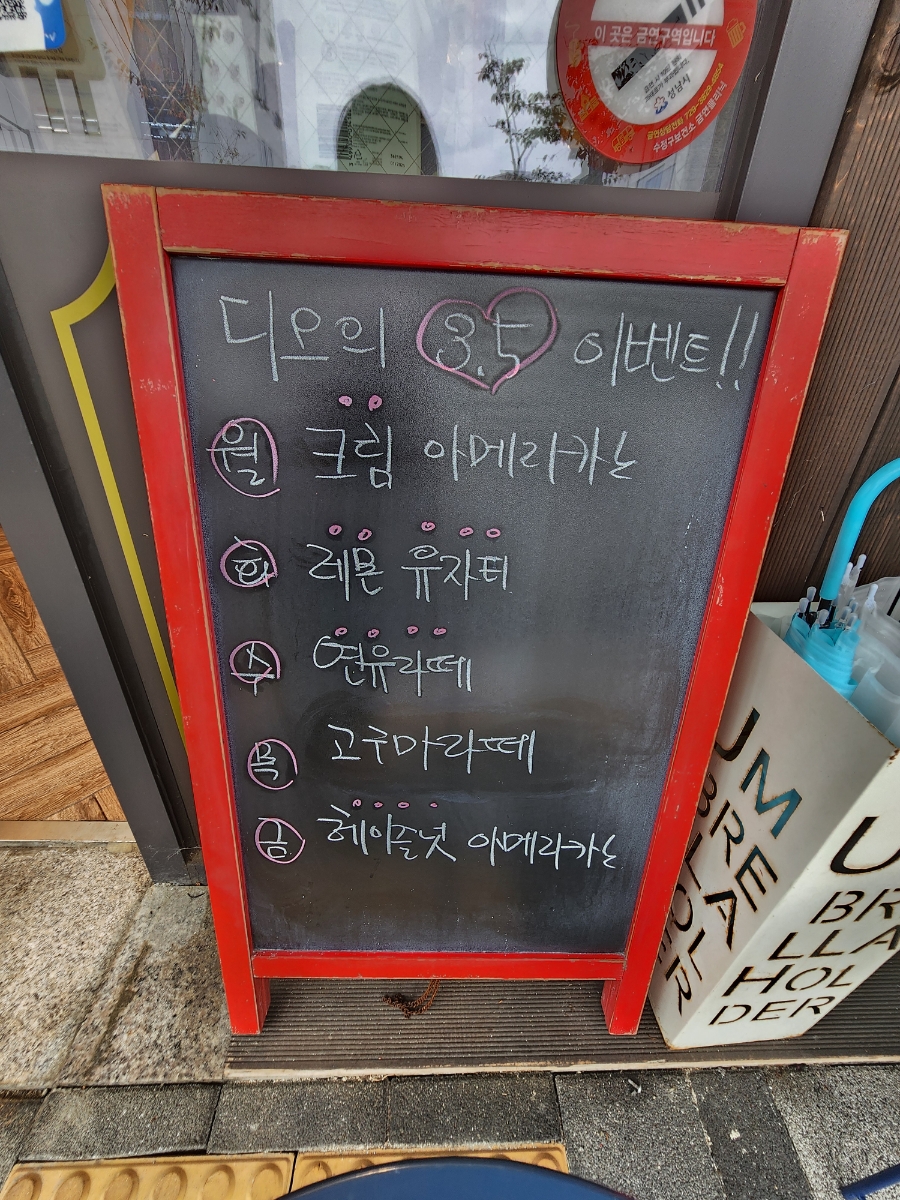 이 곳은 금연구역입니다
성남시
수정구보건소 금연클리닉
디오의 3.5 이벤트!!
월 크림 아메라카노
화 레몬 유자티
수 연유라떼
목 고구마라떼
금 헤이즐넛 아메라카노
UM
BRE
LLA
HOL
DER
U
BR
LLA
HOL
DER